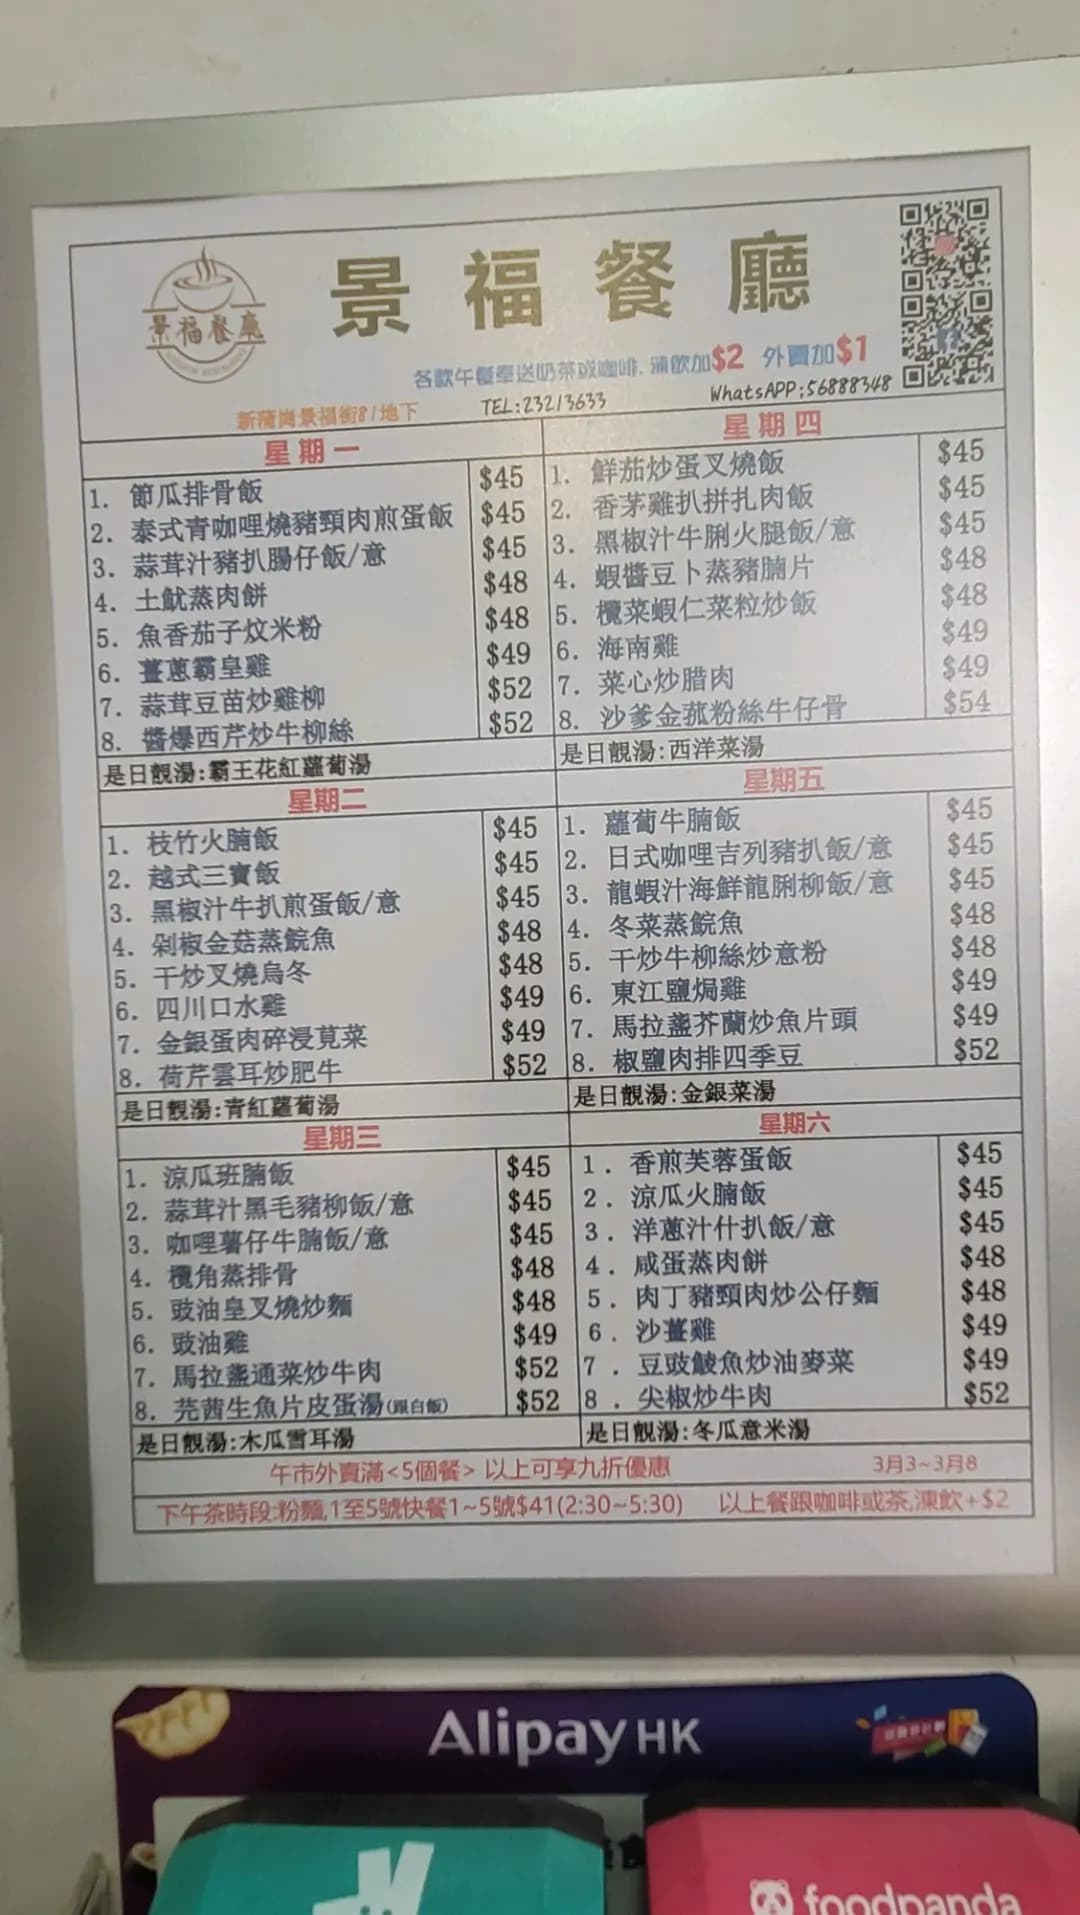 景福餐廳
景福餐廳
各款午餐奉送奶茶或咖啡. 凍飲加$2 外賣加$1
新蒲崗景福街81地下 TEL:23213633 WhatsAPP:56888348
星期一
1. 節瓜排骨飯 $45
2. 泰式青咖哩燒豬頸肉煎蛋飯 $45
3. 蒜茸汁豬扒腸仔飯/意 $45
4. 土魷蒸肉餅 $48
5. 魚香茄子炆米粉 $48
6. 薑蔥霸皇雞 $49
7. 蒜茸豆苗炒雞柳 $52
8. 醬爆西芹炒牛柳絲 $52
是日靚湯:霸王花紅蘿蔔湯
星期二
1. 枝竹火腩飯 $45
2. 越式三寶飯 $45
3. 黑椒汁牛扒煎蛋飯/意 $45
4. 剁椒金菇蒸鯇魚 $48
5. 干炒叉燒烏冬 $48
6. 四川口水雞 $49
7. 金銀蛋肉碎浸莧菜 $49
8. 荷芹雲耳炒肥牛 $52
是日靚湯:青紅蘿蔔湯
星期三
1. 涼瓜班腩飯 $45
2. 蒜茸汁黑毛豬柳飯/意 $45
3. 咖哩薯仔牛腩飯/意 $45
4. 欖角蒸排骨 $48
5. 豉油皇叉燒炒麵 $48
6. 豉油雞 $49
7. 馬拉盞通菜炒牛肉 $52
8. 芫茜生魚片皮蛋湯(跟白飯) $52
是日靚湯:木瓜雪耳湯
星期四
1. 鮮茄炒蛋叉燒飯 $45
2. 香茅雞扒拼扎肉飯 $45
3. 黑椒汁牛脷火腿飯/意 $45
4. 蝦醬豆卜蒸豬腩片 $48
5. 欖菜蝦仁菜粒炒飯 $48
6. 海南雞 $49
7. 菜心炒腊肉 $49
8. 沙爹金菰粉絲牛仔骨 $54
是日靚湯:西洋菜湯
星期五
1. 蘿蔔牛腩飯 $45
2. 日式咖哩吉列豬扒飯/意 $45
3. 龍蝦汁海鮮龍脷柳飯/意 $45
4. 冬菜蒸鯇魚 $48
5. 干炒牛柳絲炒意粉 $48
6. 東江鹽焗雞 $49
7. 馬拉盞芥蘭炒魚片頭 $49
8. 椒鹽肉排四季豆 $52
是日靚湯:金銀菜湯
星期六
1. 香煎芙蓉蛋飯 $45
2. 涼瓜火腩飯 $45
3. 洋蔥汁什扒飯/意 $45
4. 咸蛋蒸肉餅 $48
5. 肉丁豬頸肉炒公仔麵 $48
6. 沙薑雞 $49
7. 豆豉鯪魚炒油麥菜 $49
8. 尖椒炒牛肉 $52
是日靚湯:冬瓜意米湯
午市外賣滿<5個餐> 以上可享九折優惠 3月3~3月8
下午茶時段:粉麵,1至5號快餐1~5號$41(2:30~5:30) 以上餐跟咖啡或茶,凍飲+$2
Alipay HK
foodpanda